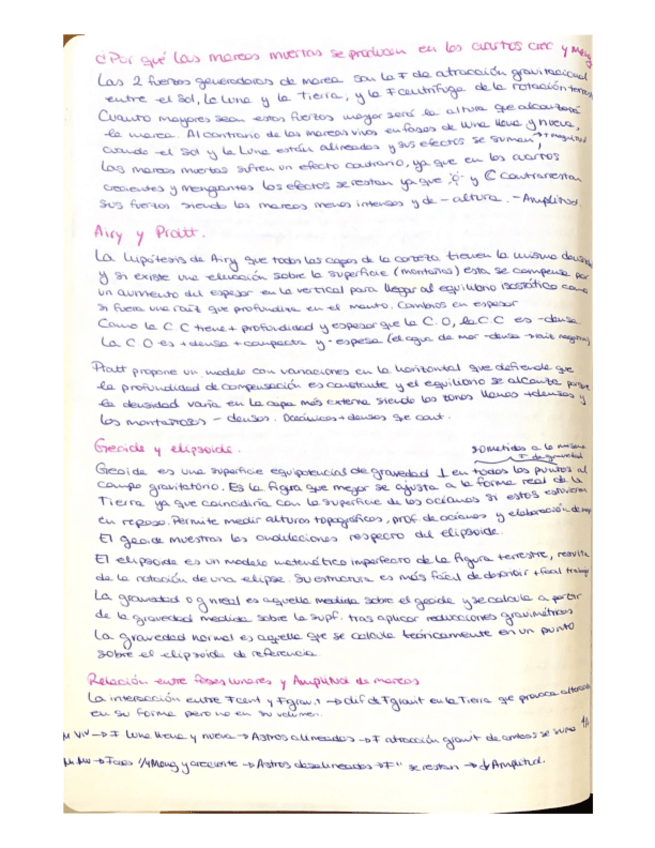 ¿Por qué las mareas muertas se producen en los cuartos crec y meng
Las 2 fuerzas generadoras de marea son la F de atracción gravitacional
entre el Sol, la Luna y la Tierra, y la F centrífuga de la rotación terrest
Cuanto mayores sean estas fuerzas mayor será la altura que alcanzará
la marea. Al contrario de las mareas vivas en fases de luna llena y nueva,
cuando el Sol y la Luna están alineados y sus efectos se suman, + magnitud
las mareas muertas sufren un efecto contrario, ya que en los cuartos
crecientes y menguantes los efectos se restan ya que y contrarrestan
sus fuerzas siendo las mareas menos intensas y de - altura. - Amplitud.
Airy y Pratt.
La hipótesis de Airy que todas las capas de la corteza tienen la misma densidad
y si existe una elevación sobre la superficie (montañas) esta se compensa por
un aumento del espesor en la vertical para llegar al equilibrio isostático como
si fuera una raíz que profundiza en el manto. Cambios en espesor
Como la C C tiene + profundidad y espesor que la C.O, la C.C es - densa
La C O es + densa + compacta y - espesa (el agua de mar - densa → raíz negativa)
Pratt propone un modelo con variaciones en la horizontal que defiende que
la profundidad de compensación es constante y el equilibrio se alcanza porque
la densidad varía en la capa más externa siendo las zonas llanas + densas y
las montañosas - densas. Oceánicas + densas que cont.
Geoide y elipsoide.
sometidos a la misma
F de gravedad
Geoide es una superficie equipotencial de gravedad ⊥ en todos los puntos al
campo gravitatorio. Es la figra que mejor se ajusta a la forma real de la
Tierra ya que coincidiría con la superficie de los océanos si estos estuvieran
en reposo. Permite medir alturas topográficas, prof. de océanos y elaboración de map
El geoide muestras las ondulaciones respecto del elipsoide.
El elipsoide es un modelo matemático imperfecto de la figura terrestre, resulta
de la rotación de una elipse. Su estructura es más fácil de describir + fácil trabajo
La gravedad o g real es aquella medida sobre el geoide y se calcula a partir
de la gravedad medida sobre la supf. tras aplicar reducciones gravimétricas
La gravedad normal es aquella que se calcula teóricamente en un punto
sobre el elipsoide de referencia.
Relación entre fases lunares y Amplitud de mareas
La interacción entre Fcent y Fgravit → dif de Fgravit en la Tierra que provoca
en su forma pero no en su volumen.
M Viv → F luna llena y nueva → Astros alineados → F atracción gravit de ambos se suma
M. Mu → Fases 1/4 Meng y creciente → Astros desalineados → F " se restan → ↓ Amplitud.